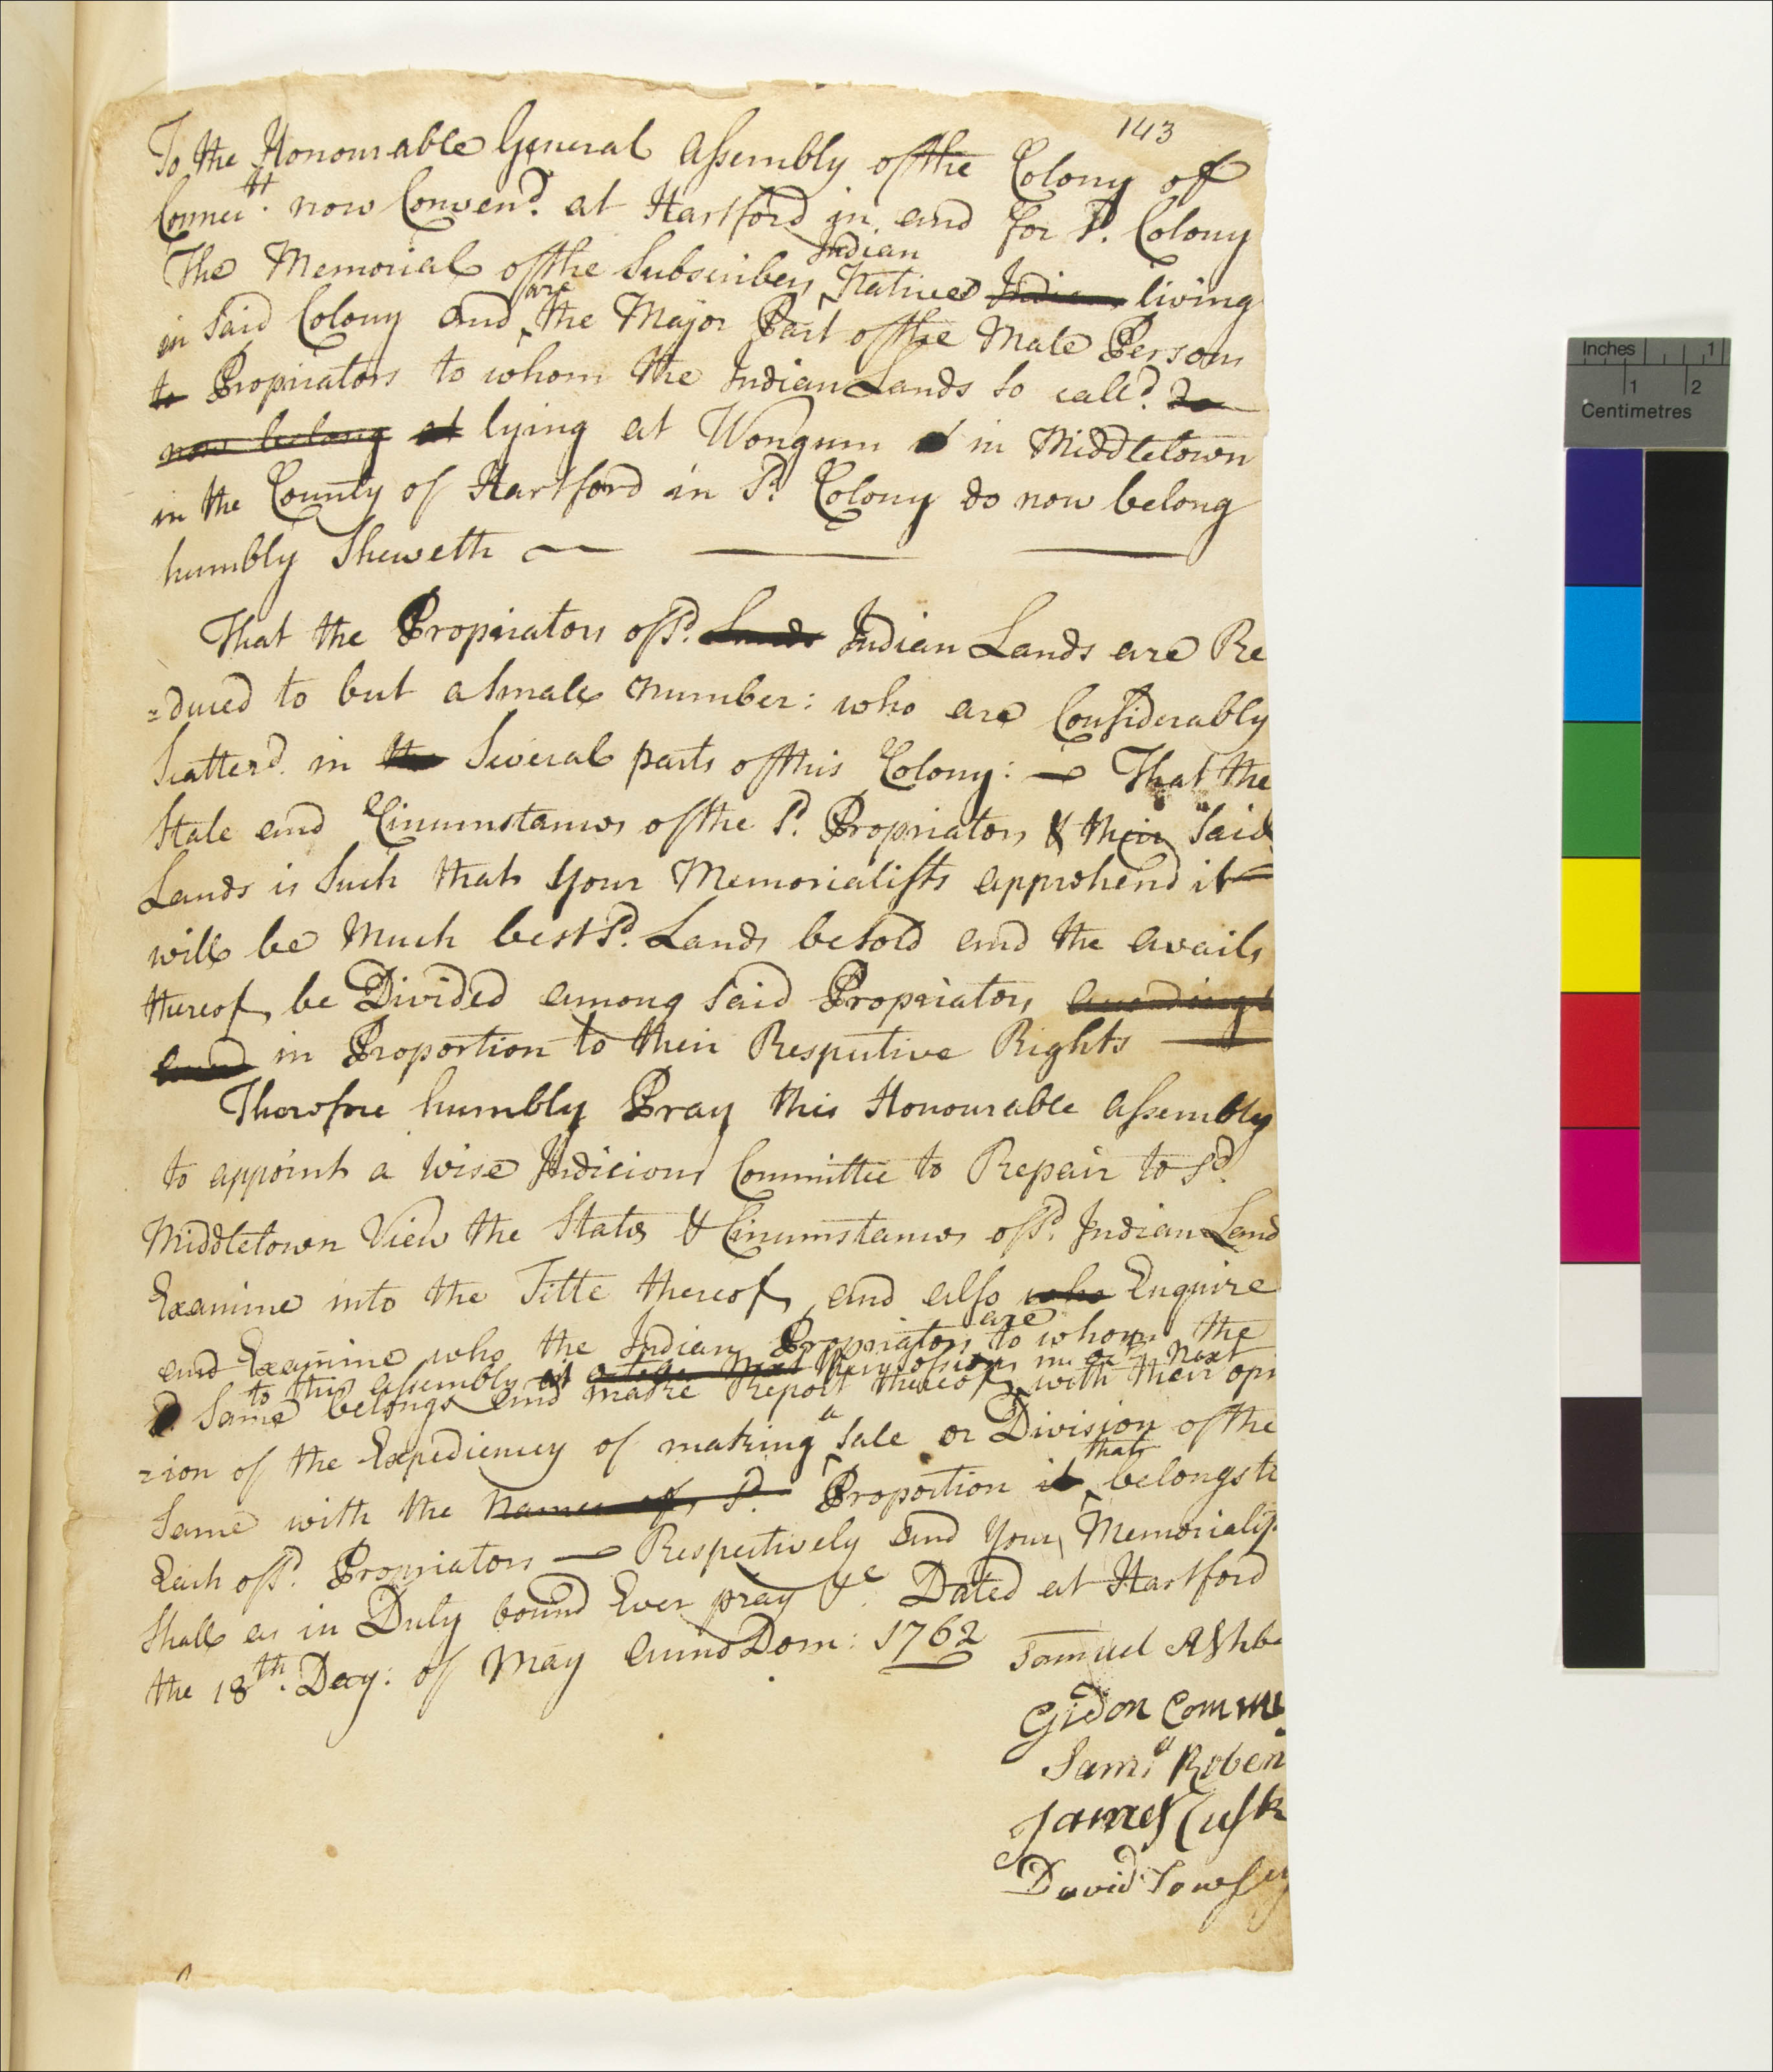 143
To the Honourable General Assembly of the Colony of
Connectt. now Conven'd. at Hartford in and for sd. Colony
The Memorial of the Subscribers Indian Natives Indians living
in Said Colony and are the Major Part of the Male Persons
to Propriators to whom the Indian Lands So call'd. do
now belong at lying at Wongum in Middletown
in the County of Hartford in sd. Colony do now belong
humbly Sheweth
That the Propriators of sd. Lands Indian Lands are Re
=duced to but a Small Number: who are Considerably
Scatterd. in the Several parts of this Colony: — That the
State and Circumstances of the sd. Propriators & their Said
Lands is Such that Your Memorialists apprehend it
will be Much best sd. Lands be sold and the avails
thereof be Divided among Said Propriators according to
and in Proportion to their Respective Rights
Therefore humbly Pray this Honourable Assembly
to appoint a Wise Judicious Committee to Repair to sd.
Middletown View the State & Circumstances of sd. Indian Land
Examine into the Title thereof, and also who Enquire
and Examine who the Indian Propriators are to whom the
Same belongs and make Report thereof to this Assembly at their sessions in Next with their opi
=nion of the Expediency of making a Sale or Division of the
Same with the Names of sd. Proportion it that belongs to
Each of sd. Propriators — Respectively and Your Memorialists
Shall as in Duty bound Ever pray &c. Dated at Hartford
the 18th. Day: of May Anno Dom: 1762
Samuel Ashbo
Gidon Comme
Samll Roben
James Cusk
David Towsey